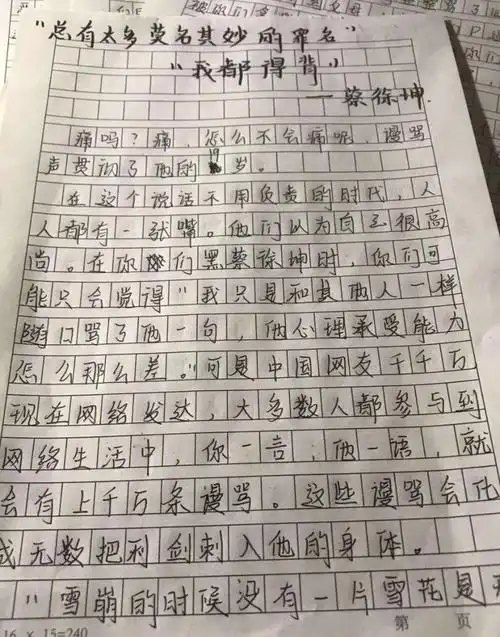 “总有太多莫名其妙的罪名”
“我都得背”
——蔡徐坤.
痛吗？痛，怎么不会痛呢，谩骂
声贯彻了他的19岁。
在这个说话不用负责的时代，人
人都有一张嘴。他们以为自己很高
尚。在你们黑蔡徐坤时，你们可
能只会觉得“我只是和其他人一样
随口骂了他一句，他心理承受能力
怎么那么差。”可是中国网友千千万
现在网络发达，大多数人都参与到
网络生活中，你一言，他一语，就
会有上千万条谩骂。这些谩骂会化
成无数把利剑刺入他的身体。
“雪崩的时候没有一片雪花是
16 × 15=240 第 页